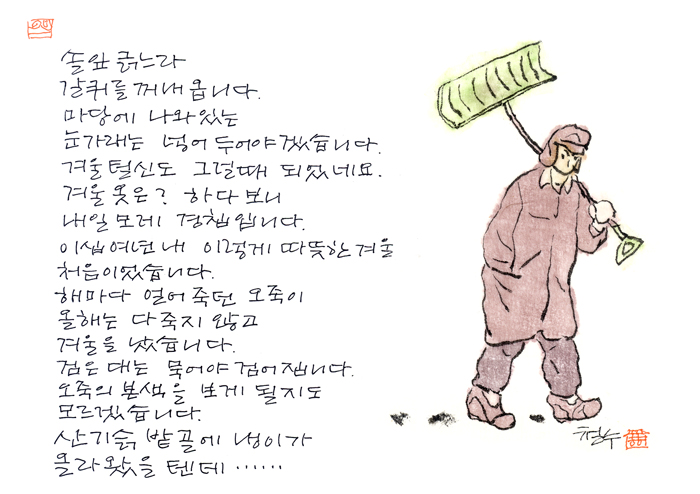 솔잎 긁느라
갈퀴를 꺼내 옵니다.
마당에 나와있는
눈가래는 넣어 두어야겠습니다.
겨울털신도 그럴때 되었네요.
겨울 옷은? 하다 보니
내일 모레 경칩입니다.
이십여년 내 이렇게 따뜻한 겨울
처음이었습니다.
해마다 얼어 죽던 오죽이
올해는 다 죽지 않고
겨울을 났습니다.
검은 대는 묵어야 검어집니다.
오죽의 본색을 보게 될지도
모르겠습니다.
산기슭 밭골에 냉이가
올라왔을 텐데 ……
철수